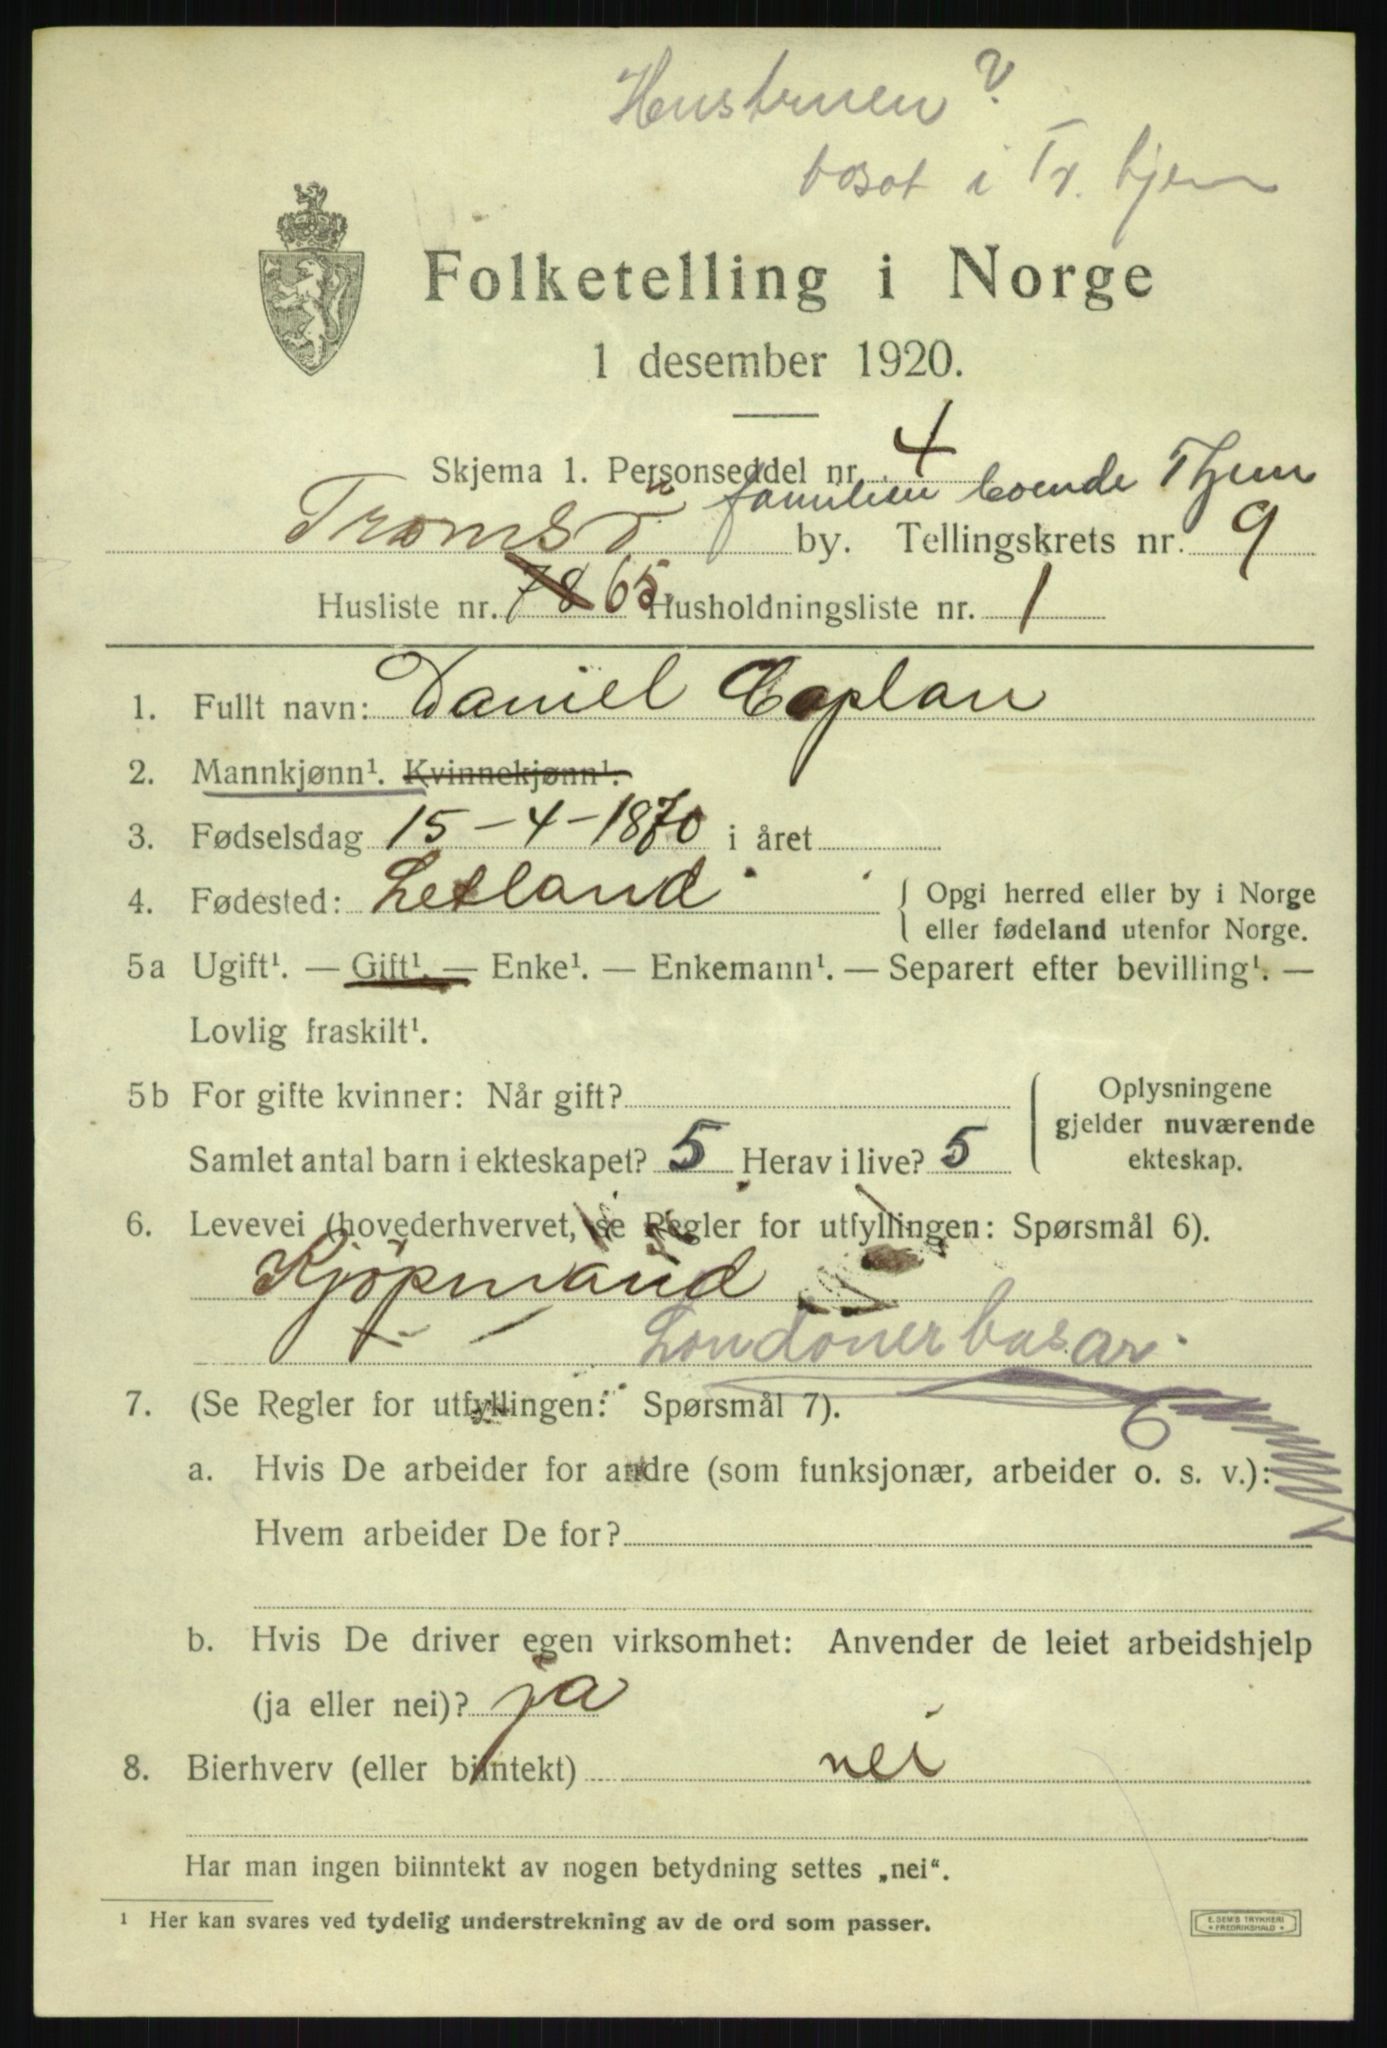 Hustruen?
bosat i Tr.hjem
Folketelling i Norge
1 desember 1920.
Skjema 1. Personseddel nr. 4
familien boende Thjem
Tromsö by. Tellingskrets nr. 9
Husliste nr. 78 65 Husholdningsliste nr. 1
1. Fullt navn: Daniel Caplan
2. Mannkjønn¹. Kvinnekjønn¹.
3. Fødselsdag 15-4-1870 i året
4. Fødested: Letland { Opgi herred eller by i Norge
eller fødeland utenfor Norge.
5a Ugift¹. — Gift¹. — Enke¹. — Enkemann¹. — Separert efter bevilling¹. —
Lovlig fraskilt¹.
5b For gifte kvinner: Når gift? Oplysningene
gjelder nuværende
Samlet antal barn i ekteskapet? 5 Herav i live? 5 ekteskap.
6. Levevei (hovederhvervet, se Regler for utfyllingen: Spørsmål 6).
Kjöpmand
Londonerbasar
7. (Se Regler for utfyllingen: Spørsmål 7).
a. Hvis De arbeider for andre (som funksjonær, arbeider o. s. v.):
Hvem arbeider De for?
b. Hvis De driver egen virksomhet: Anvender de leiet arbeidshjelp
(ja eller nei)? ja
8. Bierhverv (eller biinntekt) nei
Har man ingen biinntekt av nogen betydning settes „nei“.
¹ Her kan svares ved tydelig understrekning av de ord som passer.
E. SEM'S TRYKKERI
FREDRIKSHALD